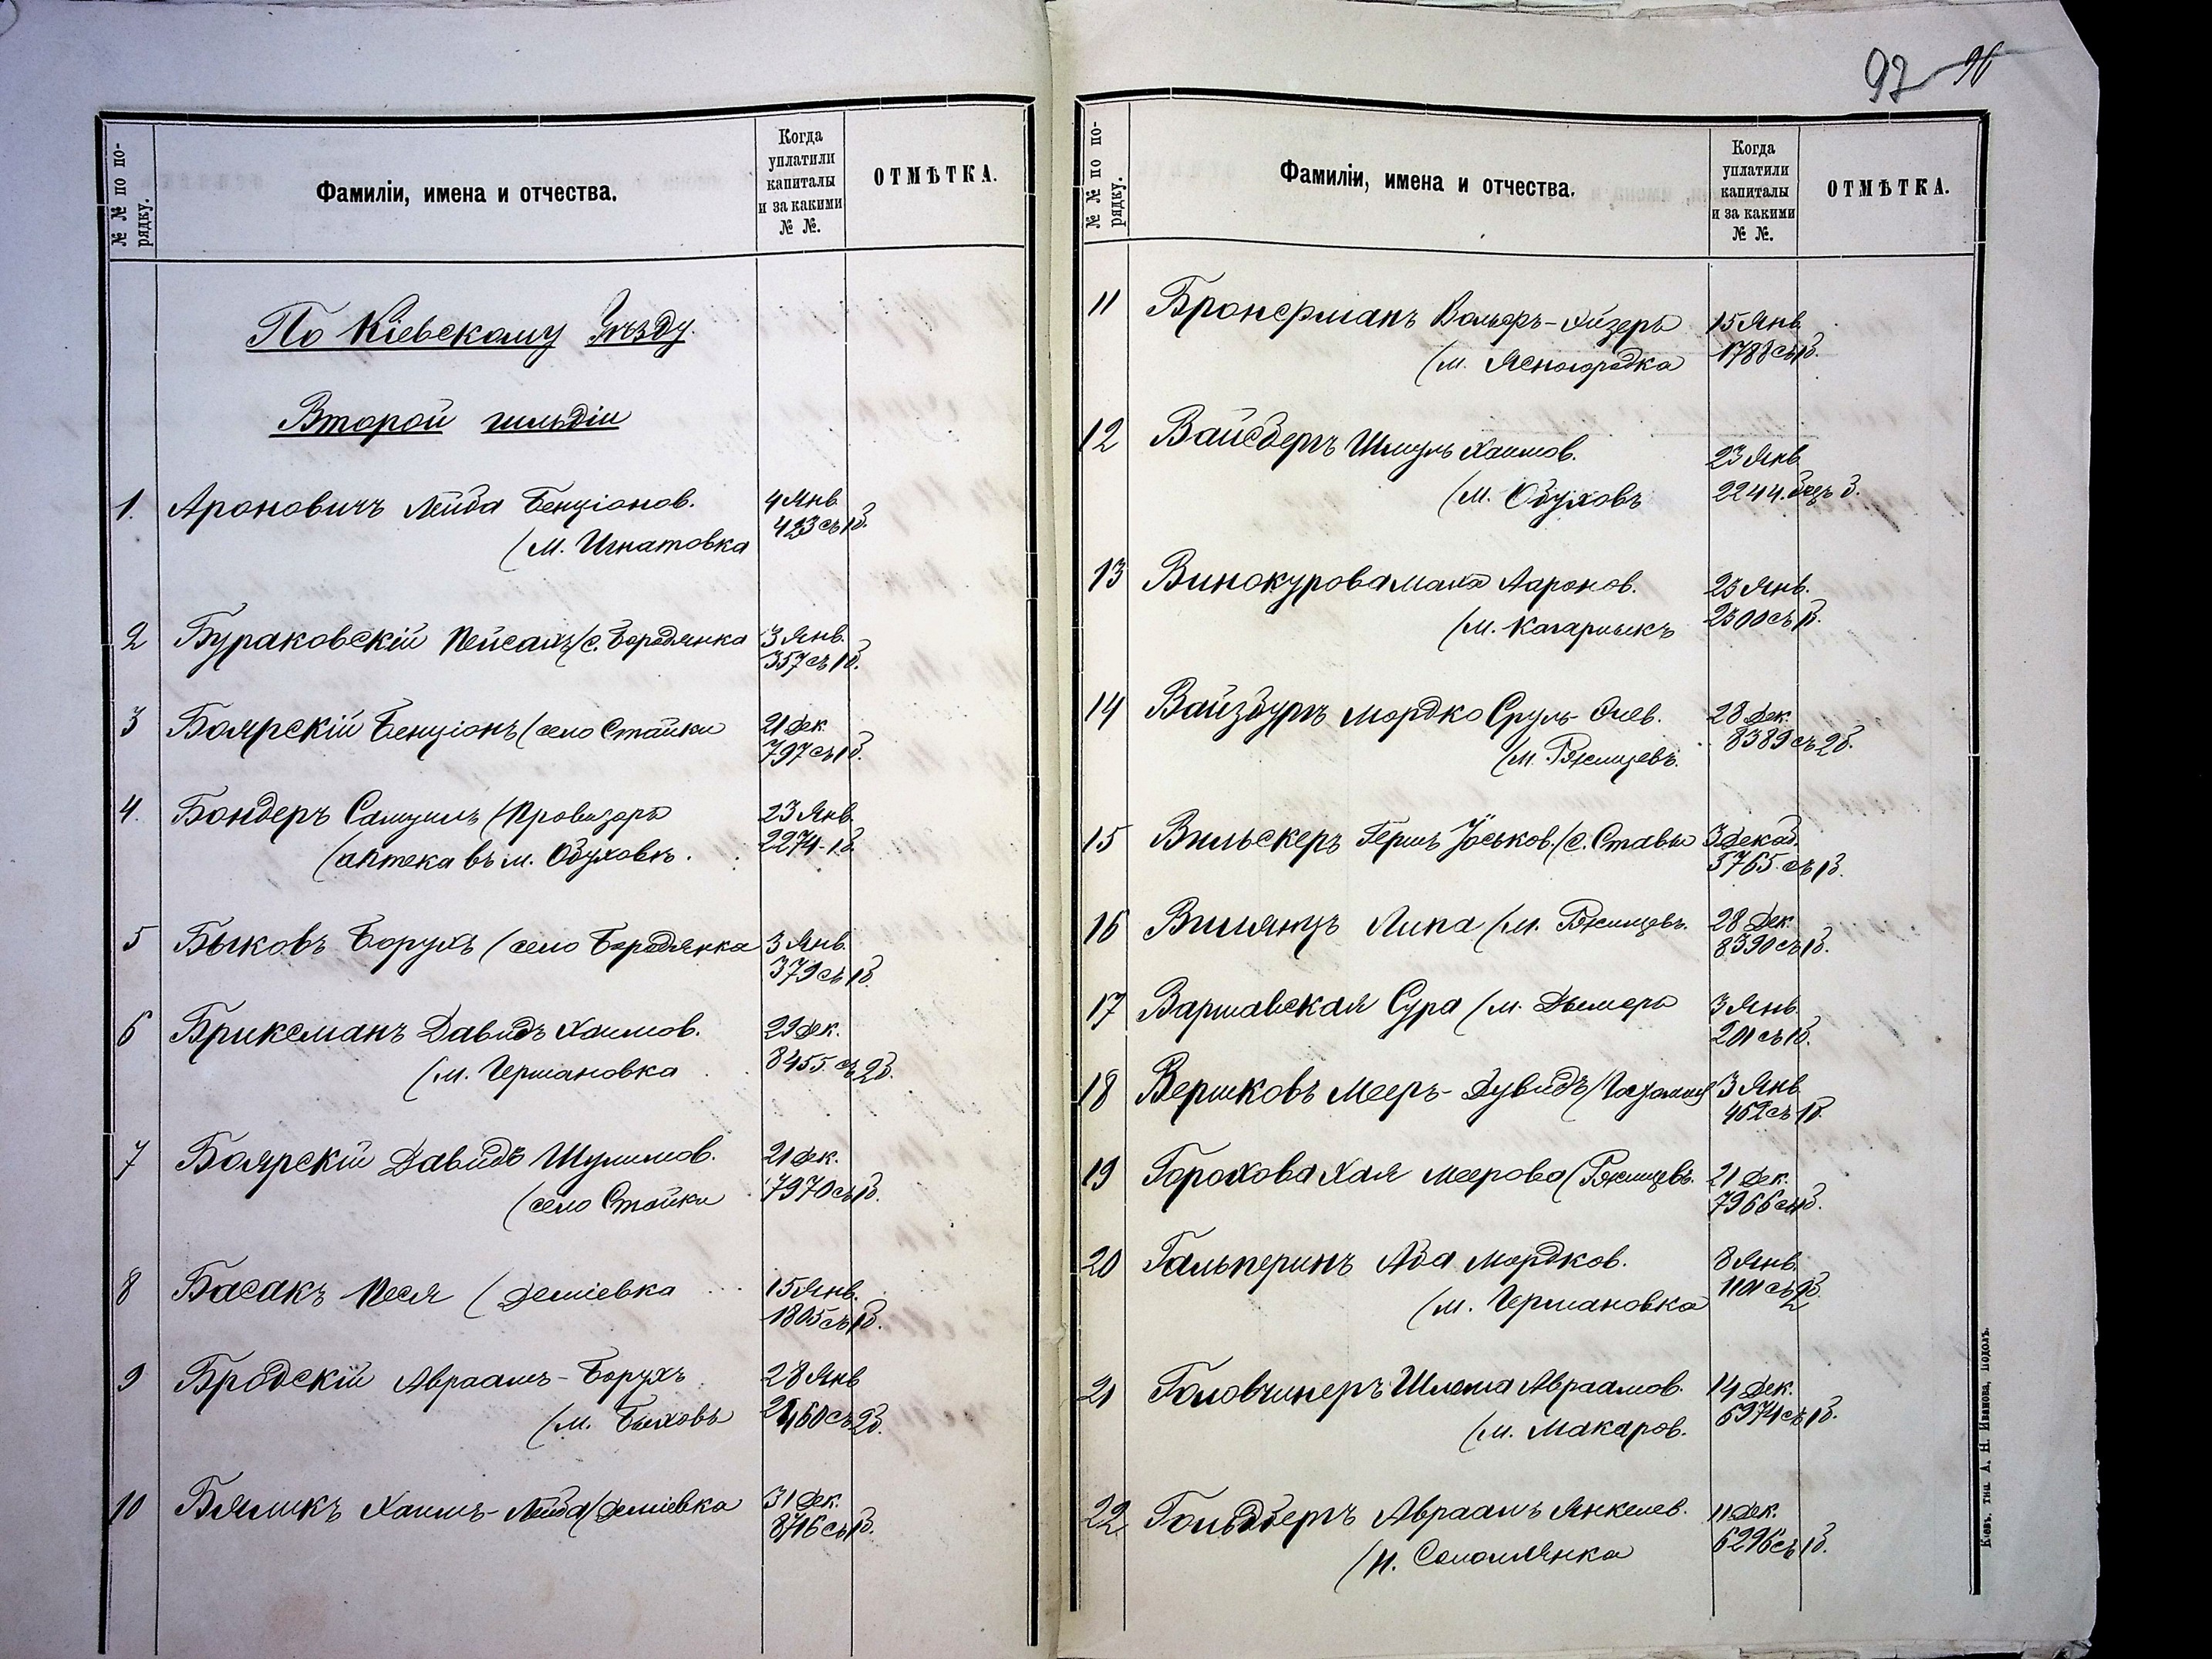 № № по по-
рядку.
Фамиліи, имена и отчества.
Когда
уплатили
капиталы
и за какими
№ №.
ОТМѢТКА.
По Кіевскому Уѣзду.
Второй гильдіи
1. Ароновичъ Лейба Бенціонов. 4 Янв.
(м. Игнатовка 423 съ 1 д.
2 Бураковскій Пейсахъ (с. Бородянка 3 Янв.
357 съ 1 д.
3 Боярскій Бенціонъ (село Стайки 21 Дек.
797 съ 1 д.
4. Бондеръ Самуилъ (Провизоръ 23 Янв.
(аптека въ м. Обуховѣ. 2274 - 1 д.
5 Быковъ Борухъ (село Бородянка 3 Янв.
379 съ 1 д.
6 Бриксманъ Давидъ Хаимов. 29 Дек.
(м. Германовка 8455 съ 2 д.
7 Боярскій Давидъ Шулимов. 21 Дек.
(село Стайки 7970 съ 1 д.
8 Басакъ Песя (Деміевка 15 Янв.
1805 съ 1 д.
9 Бродскій Авраамъ-Борухъ 28 Янв.
(м. Быховъ съ 2 д.
10 Бяликъ Хаимъ-Лейба (Деміевка 31 Дек.
8716 съ 1 д.
97 96
№ № по по-
рядку.
Фамиліи, имена и отчества.
Когда
уплатили
капиталы
и за какими
№ №.
ОТМѢТКА.
11 Бронерманъ Вольфъ-Лйзеръ 15 Янв.
(м. Ясногородка 1788 съ 1 д.
12 Вайсбергъ Шмуль Хаимов. 23 Янв.
(м. Обуховъ 2244. безъ д.
13 Винокурова Малка Ааронов. 25 Янв.
(м. Кагарлыкъ 2500 съ 1 д.
14 Вайзбургъ Мордко Сруль- 28 Дек.
(м. Ржищевъ. 8389 съ 2 д.
15 Вильскеръ Гершъ Йоськов. (с. Ставы 3 Декаб.
5765 съ 1 д.
16 Вилянцъ Липа (м. Ржищевъ. 28 Дек.
8390 съ 1 д.
17 Варшавская Сура (м. Дымеръ 3 Янв.
201 съ 1 д.
18 Вершковъ Мееръ-Дувидъ 3 Янв.
462 съ 1 д.
19 Горохова Хая Меерова (Ржищевъ. 21 Дек.
7966 съ 1 д.
20 Гальперинъ Аба Мордков. 8 Янв.
(м. Германовка 1101 съ 2 д.
21 Головчинеръ Шлема Авраамов. 14 Дек.
(м. Макаров. 6974 съ 1 д.
22 Гольдбергъ Авраамъ Янкелев. 11 Дек.
(п. Соломянка 6296 съ 1 д.
Кіевъ, тип. А. Н. Иванова, Подолъ.